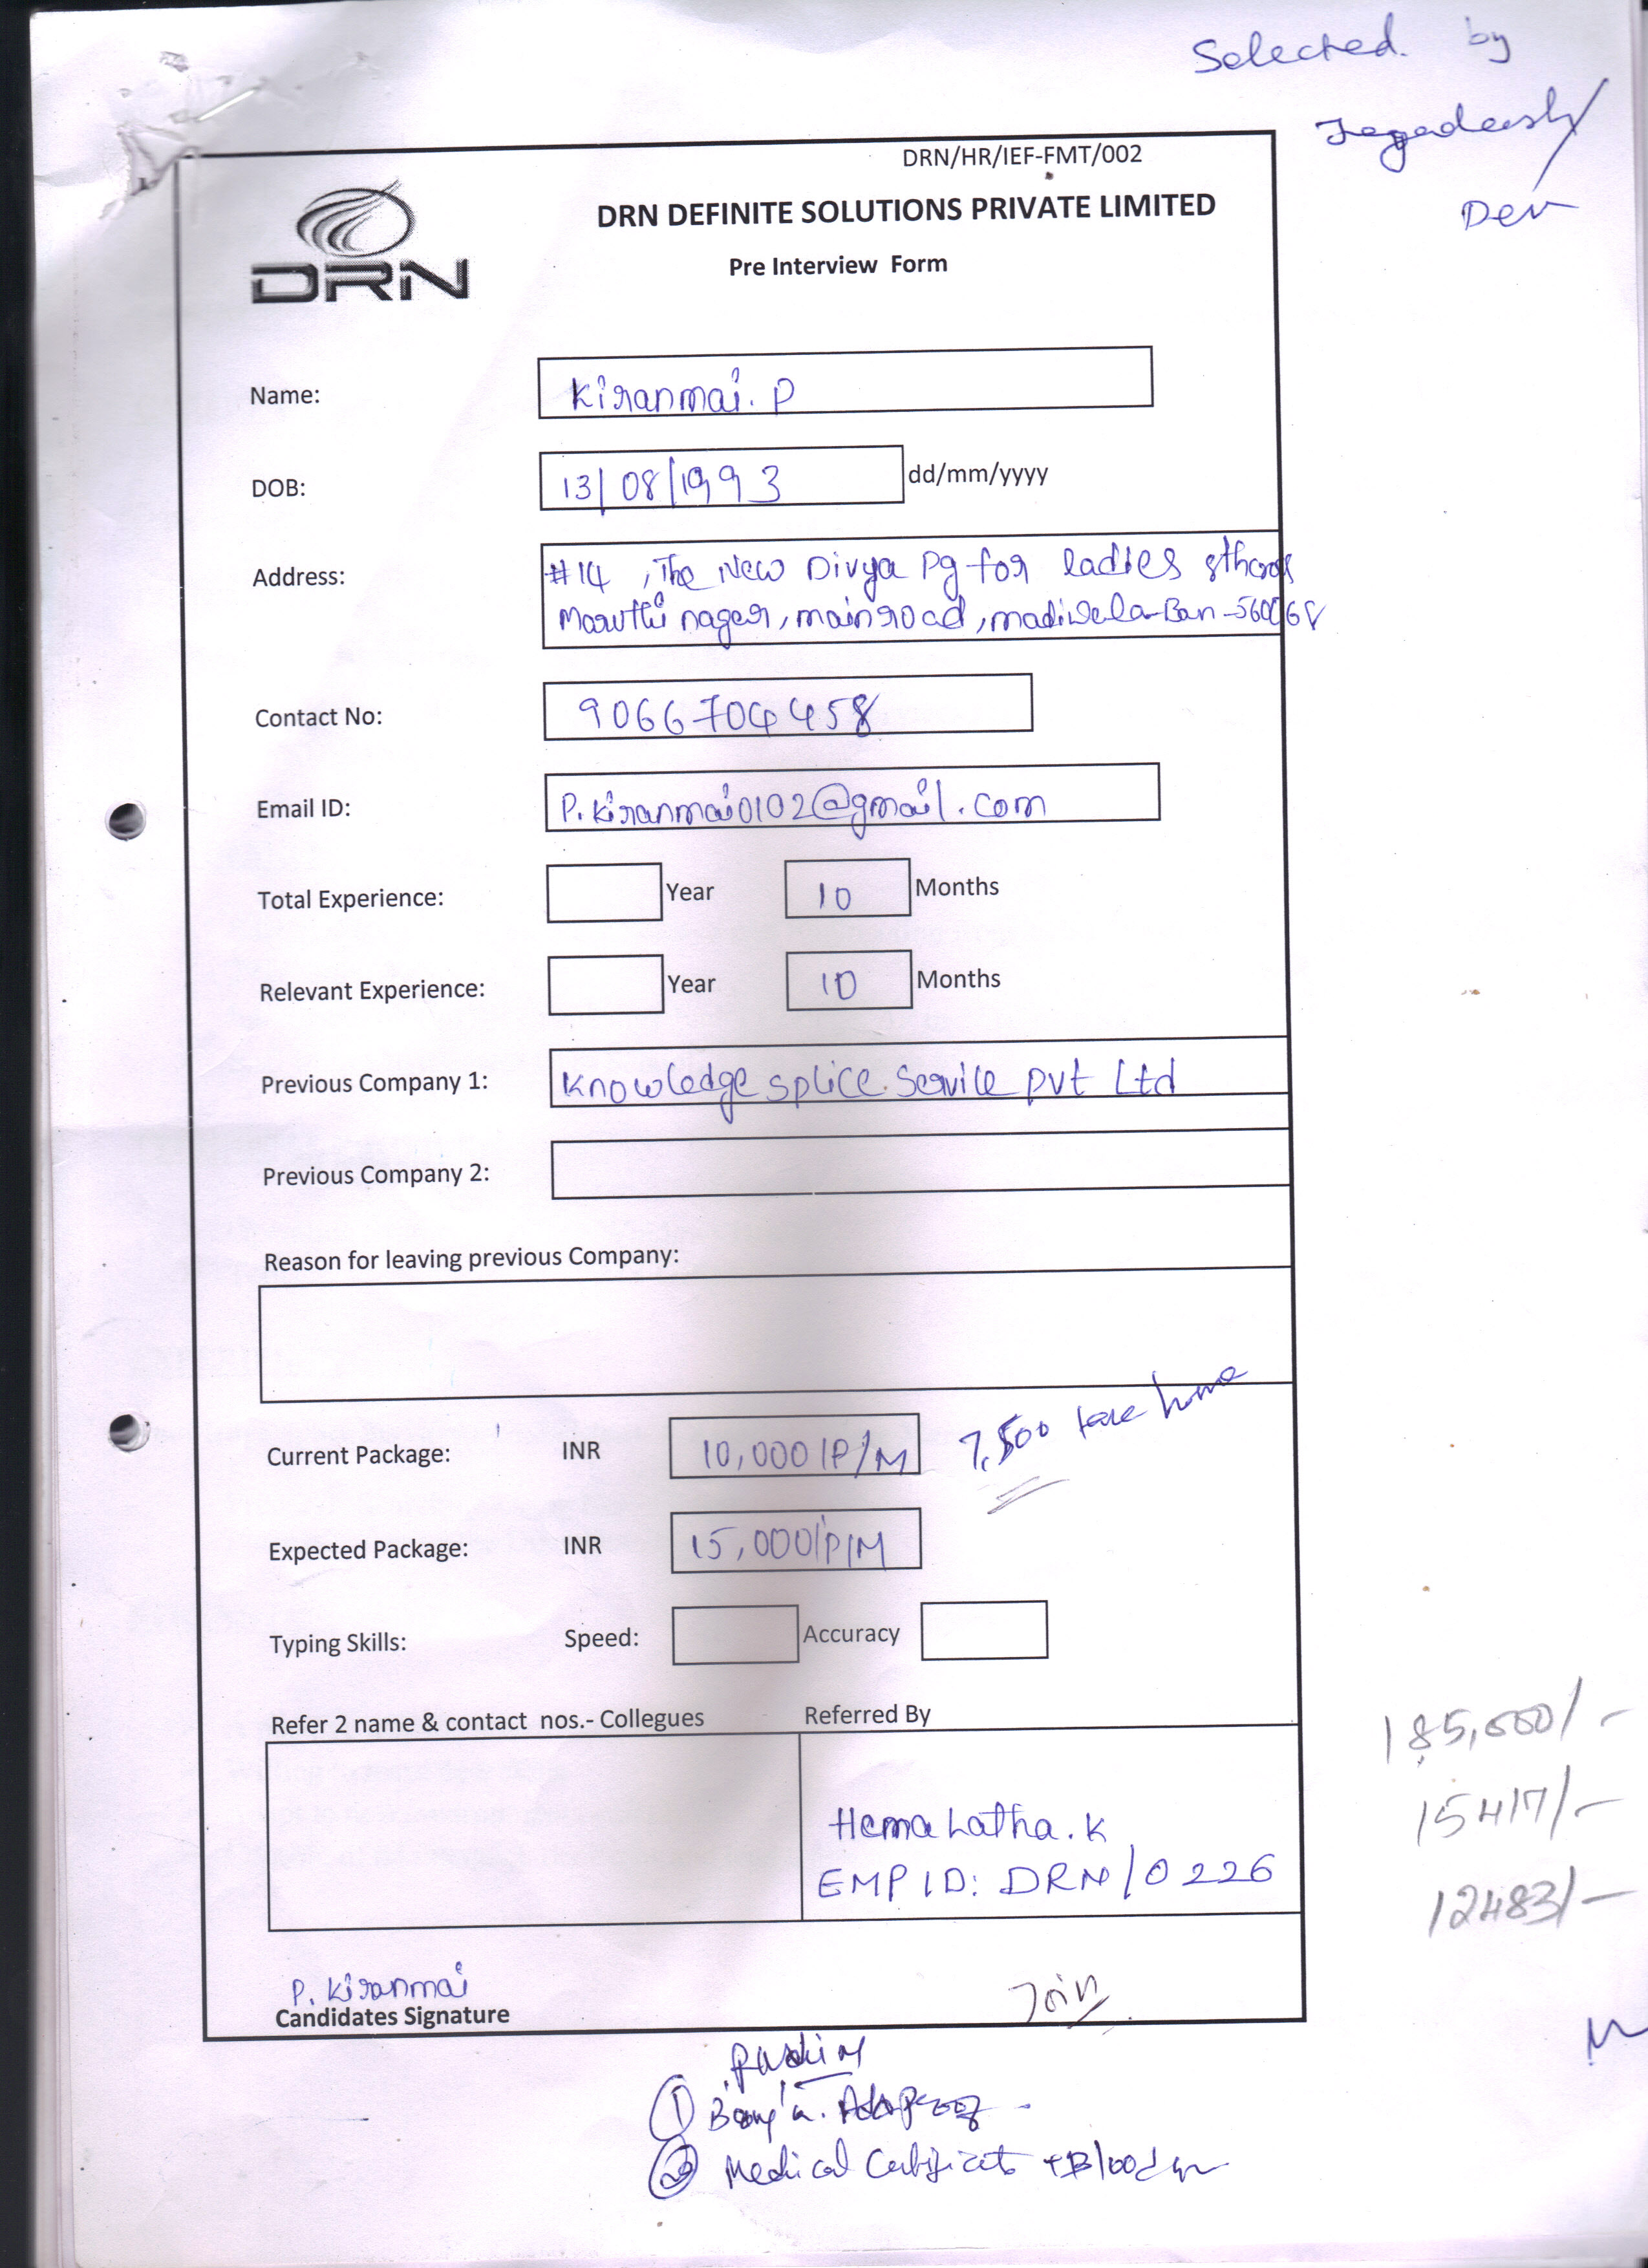 Selected by
Jagadeesh
Dev
DRN/HR/IEF-FMT/002
DRN
DRN DEFINITE SOLUTIONS PRIVATE LIMITED
Pre Interview Form
Name: Kiranmai. P
DOB: 13/08/1993 dd/mm/yyyy
Address: #14, The New Divya Pg for ladies
Maruthi nagar, mainroad, madiwala-Ban-560068
Contact No: 9066704458
Email ID: P.kiranmai0102@gmail.com
Total Experience: Year 10 Months
Relevant Experience: Year 10 Months
Previous Company 1: Knowledge splice. Service pvt Ltd
Previous Company 2:
Reason for leaving previous Company:
Current Package: INR 10,000/P/M 7,500 take home
Expected Package: INR 15,000/P/M
Typing Skills: Speed: Accuracy
Refer 2 name & contact nos.- Collegues Referred By
185,000/-
15417/-
12483/-
Hema Latha. K
EMP ID: DRN/0226
P. Kiranmai
Candidates Signature
Join
①
② Medical Certificate + Blood